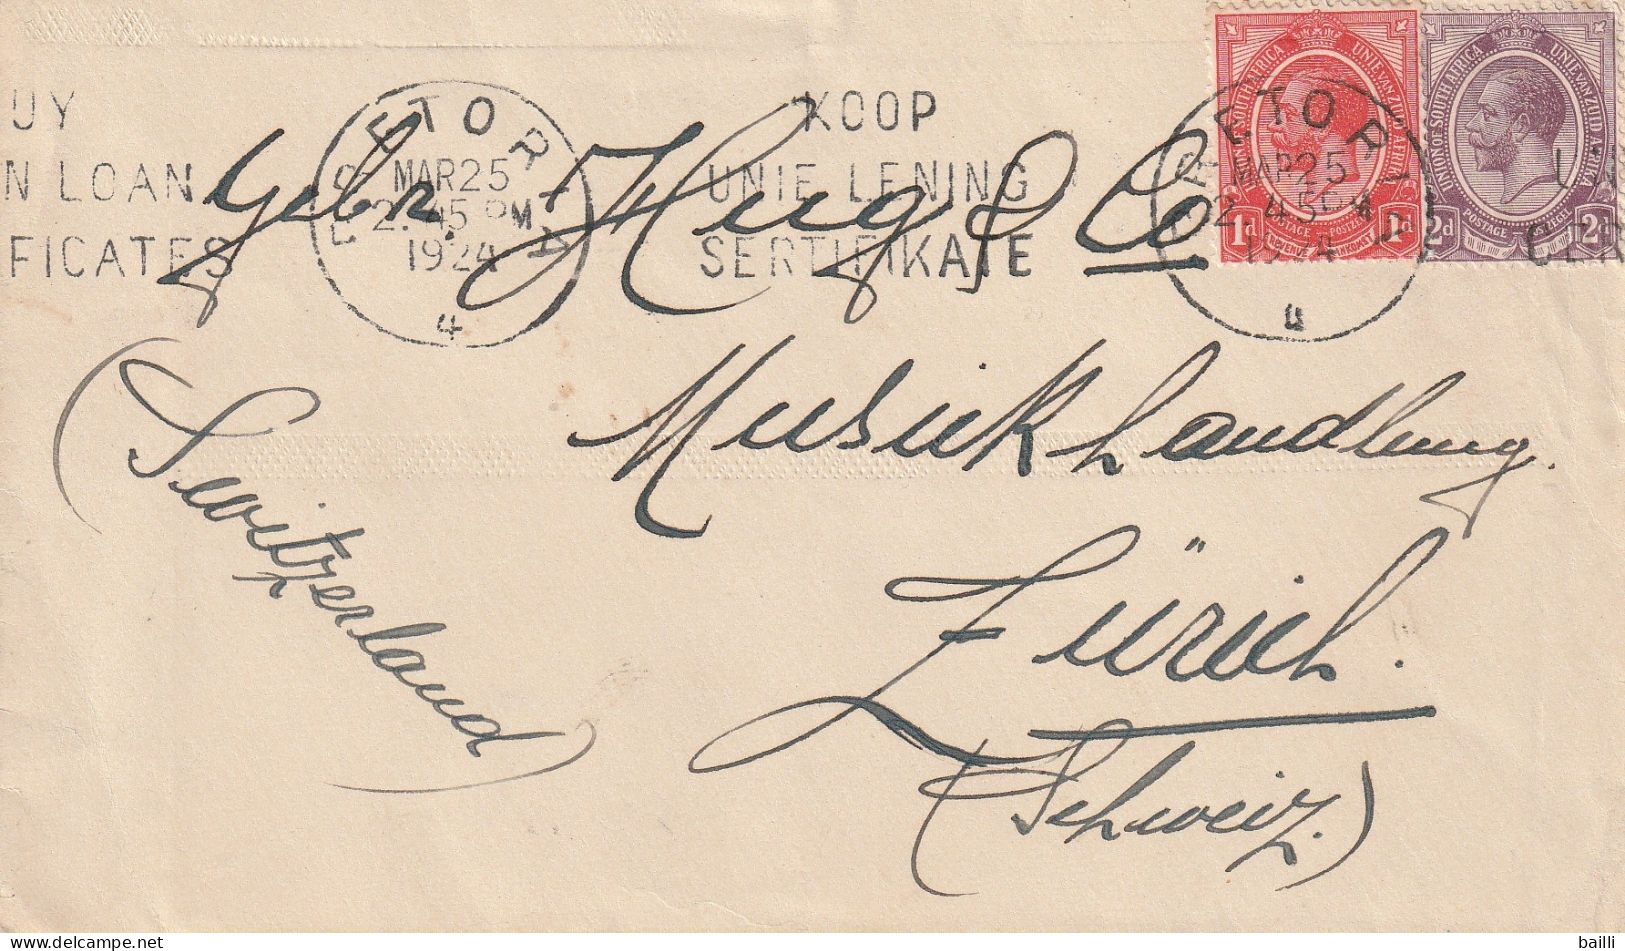 UY
N LOAN
FICATES
PRETORIA
MAR 25
2.45 PM
1924
4
KOOP
UNIE LENING
SERTIFIKATE
PRETORIA
MAR 25
2.45 PM
1924
4
UN
CER
UNION OF SOUTH AFRICA UNIE VAN ZUID AFRIKA
1d POSTAGE POSTZEGEL 1d
UNION OF SOUTH AFRICA UNIE VAN ZUID AFRIKA
2d POSTAGE POSTZEGEL 2d
Gebr. Hug & Co
Musikhandlung.
Zürich.
(Schweiz.)
(Switzerland)
delcampe.net
bailli